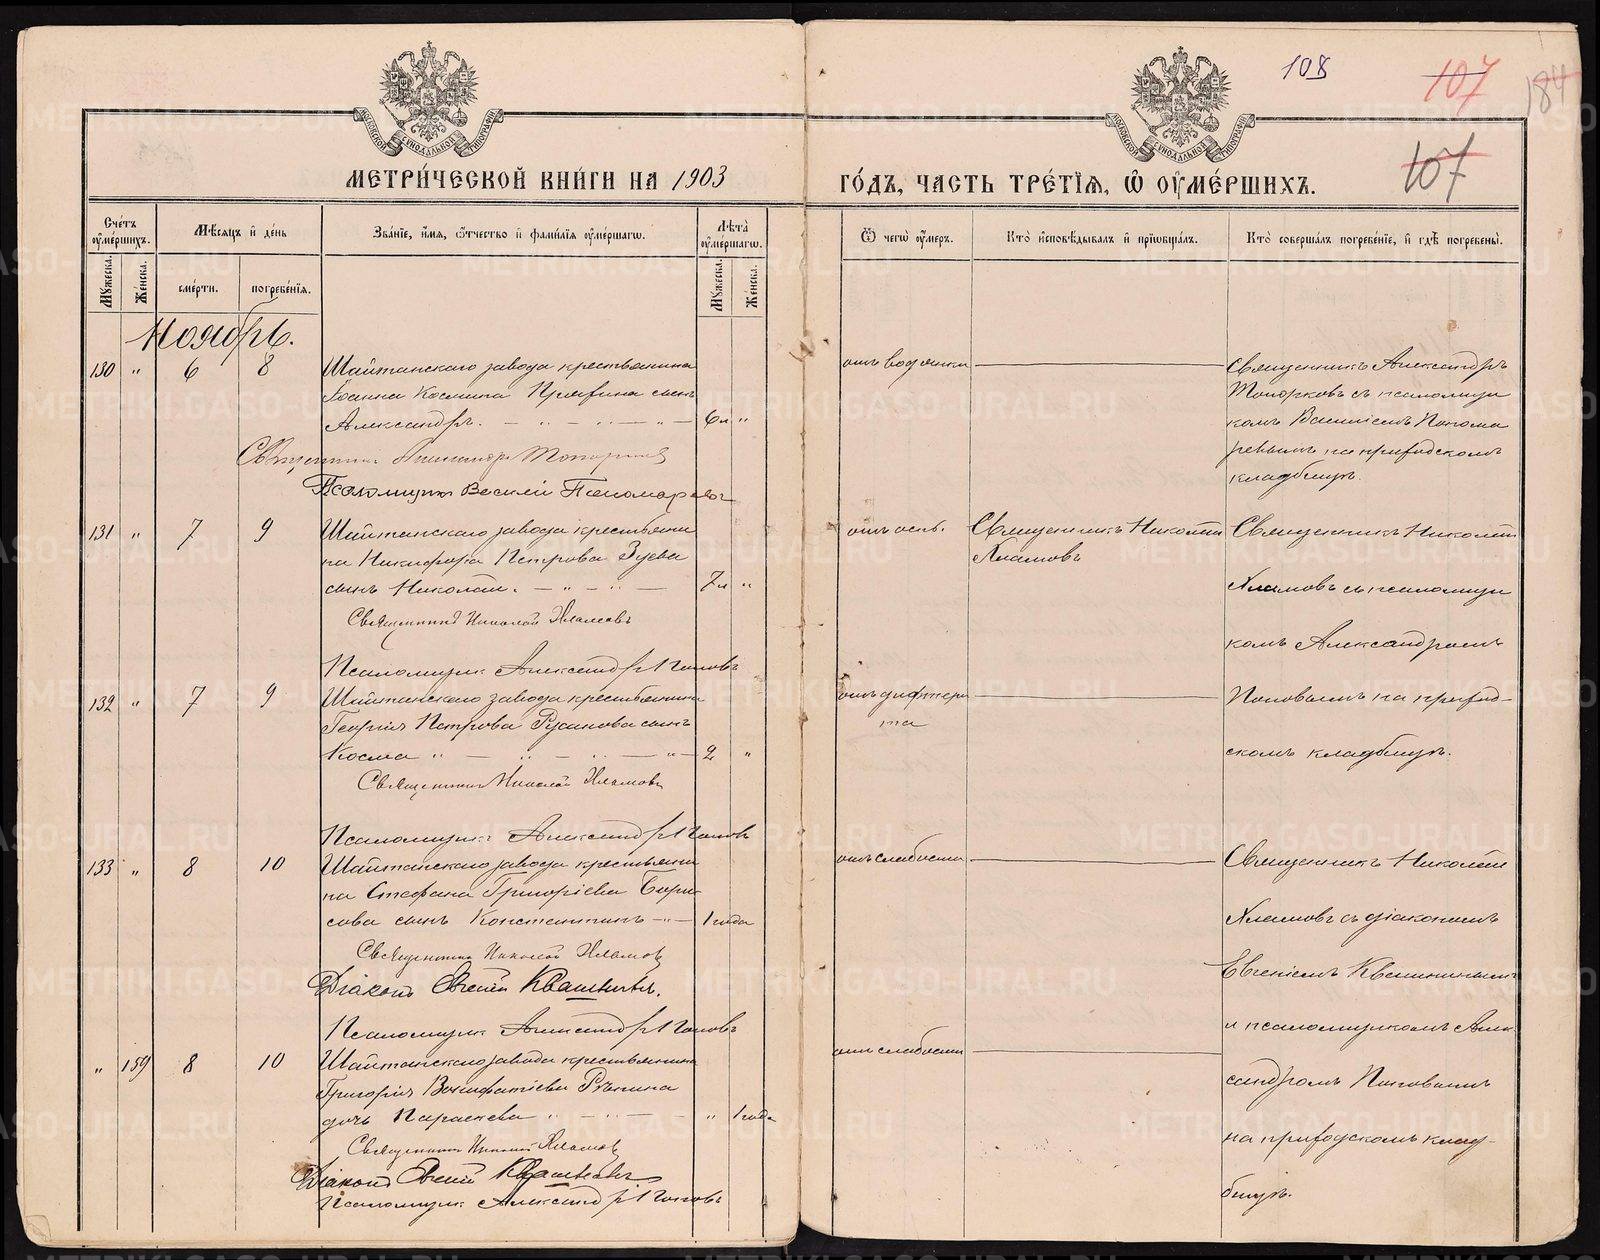 108
107
184
107
МОСКОВСКОЙ СѴНОДАЛЬНОЙ ТИПОГРАФІИ
МОСКОВСКОЙ СѴНОДАЛЬНОЙ ТИПОГРАФІИ
МЕТРИ́ЧЕСКОЙ КНИ́ГИ НА 1903
ГО́ДЪ, ЧАСТЬ ТРЕ́ТІѦ, Ѡ҆ ОУ҆МЕ́РШИХЪ.
Сче́тъ оу҆ме́ршихъ.
Мꙋ́жеска.
Же́нска.
Мѣ́сяцъ и҆ де́нь
сме́рти.
погребе́нїѧ.
Зва́нїе, и҆́мѧ, ѻ҆́тчество и҆ фами́лїѧ оу҆ме́ршагѡ.
Лѣ́та оу҆ме́ршагѡ.
Мꙋ́жеска.
Же́нска.
Ѿ чегѡ̀ оу҆́меръ.
Кто̀ и҆сповѣ́дывалъ и҆ прїѡбща́лъ.
Кто̀ соверша́лъ погребе́нїе, и҆ гдѣ̀ погребены̀.
Ноябрь.
130 " 6 8
Шайтанскаго завода крестьянина
Іоанна Космина сынъ
Александръ. 6 л "
Священникъ Александръ Топорковъ
Псаломщикъ Василій Пономаревъ
отъ водянки
Священникъ Александръ
Топорковъ съ псаломщи
комъ Василіемъ Понома
ревымъ на приходскомъ
кладбищѣ.
131 " 7 9
Шайтанскаго завода крестьяни
на Никифора Петрова Зуева
сынъ Николай. 7 л "
Священникъ Николай Хламовъ
Псаломщикъ Александръ Поповъ
отъ оспы.
Священникъ Николай
Хламовъ
Священникъ Николай
Хламовъ съ псаломщи
комъ Александромъ
Поповымъ на приход-
скомъ кладбищѣ.
132 " 7 9
Шайтанскаго завода крестьянина
Георгія Петрова Русанова сынъ
Косма 2 "
Священникъ Николай Хламовъ
Псаломщикъ Александръ Поповъ
отъ дифтери
та
133 " 8 10
Шайтанскаго завода крестьяни
на Стефана Григоріева Бори
сова сынъ Константинъ 1 года
Священникъ Николай Хламовъ
Діаконъ Евгеній Квашнинъ.
Псаломщикъ Александръ Поповъ
отъ слабости
Священникъ Николай
Хламовъ съ діакономъ
Евгеніемъ Квашнинымъ
и псаломщикомъ Алек
сандромъ Поповымъ
на приходскомъ клад-
бищѣ.
" 159 8 10
Шайтанскаго завода крестьянина
Григорія Вонифатіева Рѣпина
дочь Параскева " 1 года
Священникъ Николай Хламовъ
Діаконъ Евгеній Квашнинъ
Псаломщикъ Александръ Поповъ
отъ слабости